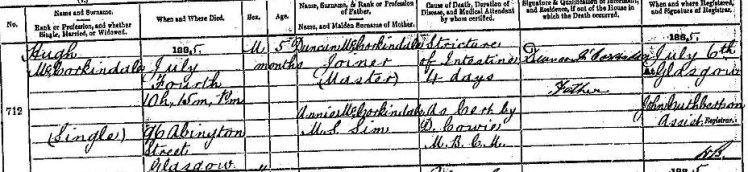 Name and Surname.
Rank or Profession, and whether Single, Married, or Widowed.
When and Where Died.
Sex.
Age.
Name, Surname, & Rank or Profession of Father.
Name, and Maiden Surname of Mother.
Cause of Death, Duration of Disease, and Medical Attendant by whom certified.
Signature & Qualification of Informant, and Residence, if out of the House in which the Death occurred.
When and where Registered, and Signature of Registrar.
No.
712
Hugh
McCorkindale
(Single)
1885,
July
Fourth
10h. 15m. P.m.
96 Abington
Street
Glasgow
M
5
months
Duncan McCorkindale
Joiner
(Master)
Annie McCorkindale
M.S. Sim
Stricture
of Intestine
4 days
As Cert by
D. Cowie
M.B.C.M.
Duncan McCorkindale
Father
1885,
July 6th
At Glasgow
John Cuthbertson
Assist Registrar.